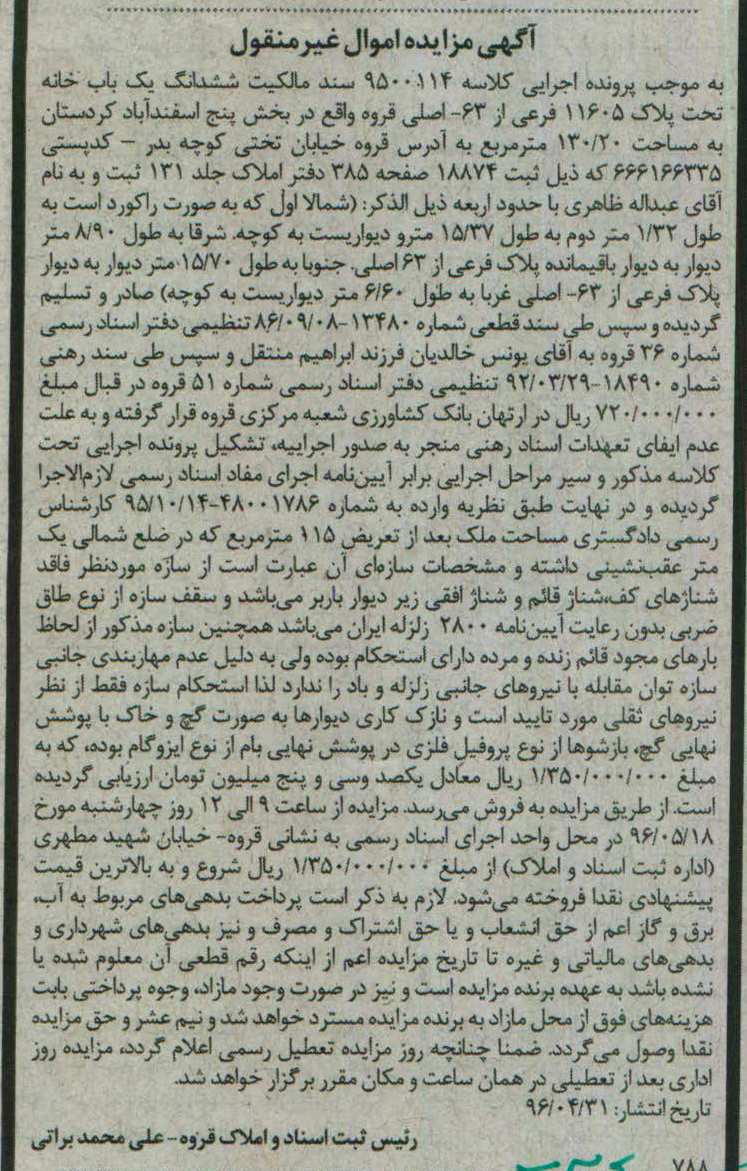 آگهی مزایده اموال غیرمنقول
به موجب پرونده اجرایی کلاسه ۹۵۰۰۱۱۴ سند مالکیت ششدانگ یک باب خانه
تحت پلاک ۱۱۶۰۵ فرعی از ۶۳- اصلی قروه واقع در بخش پنج اسفندآباد کردستان
به مساحت ۱۳۰/۲۰ مترمربع به آدرس قروه خیابان تختی کوچه بدر – کدپستی
۶۶۶۱۶۶۳۳۵ که ذیل ثبت ۱۸۸۷۴ صفحه ۳۸۵ دفتر املاک جلد ۱۳۱ ثبت و به نام
آقای عبداله ظاهری با حدود اربعه ذیل الذکر: (شمالا اول که به صورت راکورد است به
طول ۱/۳۲ متر دوم به طول ۱۵/۳۷ مترو دیواریست به کوچه. شرقا به طول ۸/۹۰ متر
دیوار به دیوار باقیمانده پلاک فرعی از ۶۳ اصلی. جنوبا به طول ۱۵/۷۰ متر دیوار به دیوار
پلاک فرعی از ۶۳- اصلی غربا به طول ۶/۶۰ متر دیواریست به کوچه) صادر و تسلیم
گردیده و سپس طی سند قطعی شماره ۱۳۴۸۰-۸۶/۰۹/۰۸ تنظیمی دفتر اسناد رسمی
شماره ۳۶ قروه به آقای یونس خالدیان فرزند ابراهیم منتقل و سپس طی سند رهنی
شماره ۱۸۴۹۰-۹۲/۰۳/۲۹ تنظیمی دفتر اسناد رسمی شماره ۵۱ قروه در قبال مبلغ
۷۲۰/۰۰۰/۰۰۰ ریال در ارتهان بانک کشاورزی شعبه مرکزی قروه قرار گرفته و به علت
عدم ایفای تعهدات اسناد رهنی منجر به صدور اجراییه، تشکیل پرونده اجرایی تحت
کلاسه مذکور و سیر مراحل اجرایی برابر آیین‌نامه اجرای مفاد اسناد رسمی لازم‌الاجرا
گردیده و در نهایت طبق نظریه وارده به شماره ۴۸۰۰۱۷۸۶-۹۵/۱۰/۱۴ کارشناس
رسمی دادگستری مساحت ملک بعد از تعریض ۱۱۵ مترمربع که در ضلع شمالی یک
متر عقب‌نشینی داشته و مشخصات سازه‌ای آن عبارت است از سازه موردنظر فاقد
شناژهای کف،شناژ قائم و شناژ افقی زیر دیوار باربر می‌باشد و سقف سازه از نوع طاق
ضربی بدون رعایت آیین‌نامه ۲۸۰۰ زلزله ایران می‌باشد همچنین سازه مذکور از لحاظ
بارهای مجود قائم زنده و مرده دارای استحکام بوده ولی به دلیل عدم مهاربندی جانبی
سازه توان مقابله با نیروهای جانبی زلزله و باد را ندارد لذا استحکام سازه فقط از نظر
نیروهای ثقلی مورد تایید است و نازک کاری دیوارها به صورت گچ و خاک با پوشش
نهایی گچ، بازشوها از نوع پروفیل فلزی در پوشش نهایی بام از نوع ایزوگام بوده، که به
مبلغ ۱/۳۵۰/۰۰۰/۰۰۰ ریال معادل یکصد وسی و پنج میلیون تومان ارزیابی گردیده
است. از طریق مزایده به فروش می‌رسد. مزایده از ساعت ۹ الی ۱۲ روز چهارشنبه مورخ
۹۶/۰۵/۱۸ در محل واحد اجرای اسناد رسمی به نشانی قروه- خیابان شهید مطهری
(اداره ثبت اسناد و املاک) از مبلغ ۱/۳۵۰/۰۰۰/۰۰۰ ریال شروع و به بالاترین قیمت
پیشنهادی نقدا فروخته می‌شود. لازم به ذکر است پرداخت بدهی‌های مربوط به آب،
برق و گاز اعم از حق انشعاب و یا حق اشتراک و مصرف و نیز بدهی‌های شهرداری و
بدهی‌های مالیاتی و غیره تا تاریخ مزایده اعم از اینکه رقم قطعی آن معلوم شده یا
نشده باشد به عهده برنده مزایده است و نیز در صورت وجود مازاد، وجوه پرداختی بابت
هزینه‌های فوق از محل مازاد به برنده مزایده مسترد خواهد شد و نیم عشر و حق مزایده
نقدا وصول می‌گردد. ضمنا چنانچه روز مزایده تعطیل رسمی اعلام گردد، مزایده روز
اداری بعد از تعطیلی در همان ساعت و مکان مقرر برگزار خواهد شد.
تاریخ انتشار: ۹۶/۰۴/۳۱
رئیس ثبت اسناد و املاک قزوه- علی محمد براتی
۷۸۸